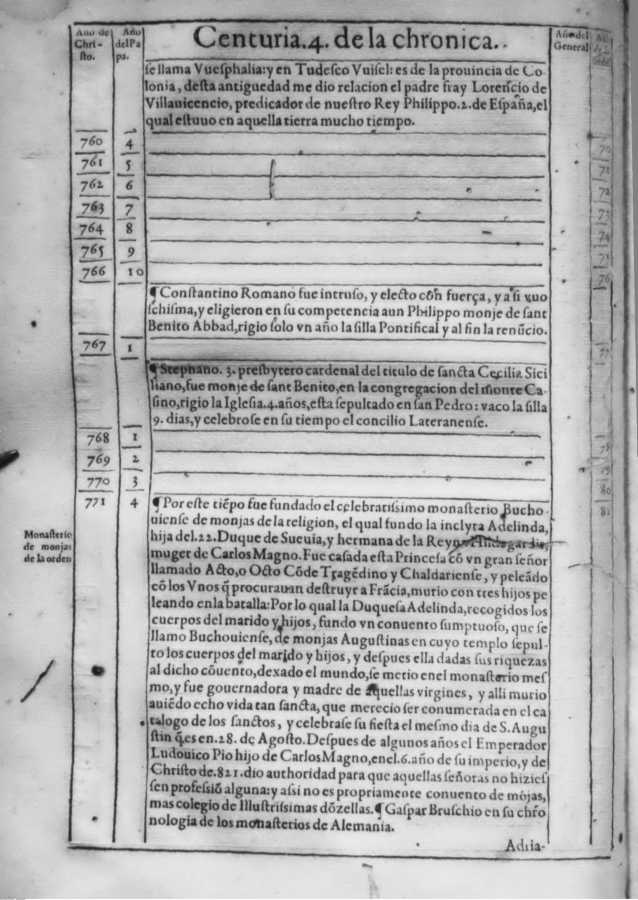 Año de Christo.
Año del Papa.
Centuria.4. de la chronica.
Año del General
se llama Vuesphalia: y en Tudesco Vuisel: es de la prouincia de Co-
lonia, desta antiguedad me dio relacion el padre fray Lorenscio de
Villauicencio, predicador de nuestro Rey Philippo.2.de España, el
qual estuuo en aquella tierra mucho tiempo.
760 4
761 5
762 6
763 7
764 8
765 9
766 10
¶Constantino Romano fue intruso, y electo cõn fuerça, y asi vuo
schisma, y eligieron en su competencia aun Philippo monje de sant
Benito Abbad, rigio solo vn año la silla Pontifical y al fin la renũcio.
767 1
¶Stephano. 3. presbytero cardenal del titulo de sancta Cecilia Sici
liano, fue monje de sant Benito, en la congregacion del monte Ca-
sino, rigio la Iglesia.4.años, esta sepultado en san Pedro: vaco la silla
9. dias, y celebrose en su tiempo el concilio Lateranense.
768 1
769 2
770 3
771 4
¶Por este tiẽpo fue fundado el celebratissimo monasterio Bucho-
uiense de monjas de la religion, el qual fundo la inclyta Adelinda,
hija del.22. Duque de Sueuia, y hermana de la Reyna
muger de Carlos Magno. Fue casada esta Princesa cõ vn gran señor
llamado Acto, o Octo Cõde Tragẽdino y Chaldariense, y peleãdo
cõ los Vnos q̃ procurauan destruyr a Frãcia, murio con tres hijos pe
leando en la batalla: Por lo qual la Duquesa Adelinda, recogidos los
cuerpos del marido y hijos, fundo vn conuento sumptuoso, que se
llamo Buchouiense, de monjas Augustinas en cuyo templo sepul-
to los cuerpos del marido y hijos, y despues ella dadas sus riquezas
al dicho cõuento, dexado el mundo, se metio en el monasterio mes
mo, y fue gouernadora y madre de aquellas virgines, y alli murio
auiẽdo echo vida tan sancta, que merecio ser conumerada en el ca
talogo de los sanctos, y celebrase su fiesta el mesmo dia de S. Augu
stin q̃ es en.28. de Agosto. Despues de algunos años el Emperador
Ludouico Pio hijo de Carlos Magno, en el.6.año de su imperio, y de
Christo de.821.dio authoridad para que aquellas señoras no hizies
sen professiõ alguna: y assi no es propriamente conuento de mõjas,
mas colegio de Illustrissimas dõzellas.¶Gaspar Bruschio en su chro
nologia de los monasterios de Alemania.
Monasterio
de monjas
de la orden
Adria-